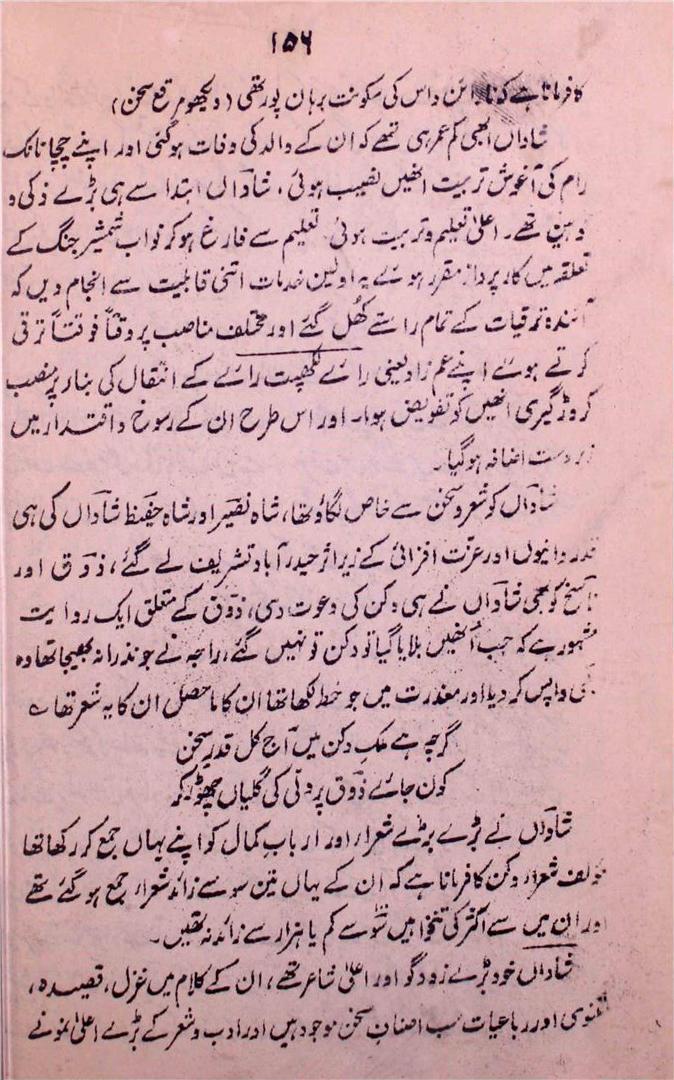 ۱۵۶
کا فرمانا ہے کہ نارائن داس کی سکونت برہان پور تھی (دیکھو مرقع سخن)
شاداں ابھی کم عمر ہی تھے کہ ان کے والد کی وفات ہو گئی اور اپنے چچا نانک
رام کی آغوش تربیت انھیں نصیب ہوئی، شاداں ابتدا سے ہی بڑے ذکی و
ذہین تھے۔ اعلیٰ تعلیم و تربیت ہوئی۔ تعلیم سے فارغ ہو کر نواب شمشیر جنگ کے
تعلقہ میں کار پرداز مقرر ہوئے یہ اولین خدمات اتنی قابلیت سے انجام دیں کہ
آئندہ ترقیات کے تمام راستے کھل گئے اور مختلف مناصب پر وقتاً فوقتاً ترقی
کرتے ہوئے اپنے عم زاد یعنی رائے لکھپت رائے کے انتقال کی بناء پر منصب
کروڑ گیری انھیں کو تفویض ہوا۔ اور اس طرح ان کے رسوخ و اقتدار میں
زبردست اضافہ ہو گیا۔
شاداں کو شعر و سخن سے خاص لگاؤ تھا، شاہ نصیر اور شاہ حفیظ شاداں کی ہی
قدر دانیوں اور عزت افزائی کے زیر اثر حیدر آباد تشریف لے گئے، ذوق اور
ناسخ کو بھی شاداں نے ہی دکن کی دعوت دی، ذوق کے متعلق ایک روایت
مشہور ہے کہ جب اُنھیں بلایا گیا تو دکن تو نہیں گئے، راجہ نے جو نذرانہ بھیجا تھا وہ
بھی واپس کر دیا اور معذرت میں جو خط لکھا تھا ان کا ماحصل ان کا یہ شعر تھا ؎
گرچہ ہے ملک دکن میں آج کل قدر سخن
کون جائے ذوق پر دلی کی گلیاں چھوڑ کر
شاداں نے بڑے بڑے شعراء اور ارباب کمال کو اپنے یہاں جمع کر رکھا تھا
مؤلف شعراء دکن کا فرمانا ہے کہ ان کے یہاں تین سو سے زائد شعراء جمع ہو گئے تھے
اور ان میں سے اکثر کی تنخواہیں سو سے کم یا ہزار سے زائد نہ تھیں۔
شاداں خود بڑے زود گو اور اعلیٰ شاعر تھے، ان کے کلام میں غزل، قصیدہ،
مثنوی اور رباعیات سب اصناف سخن موجود ہیں اور ادب و شعر کے بڑے اعلیٰ نمونے